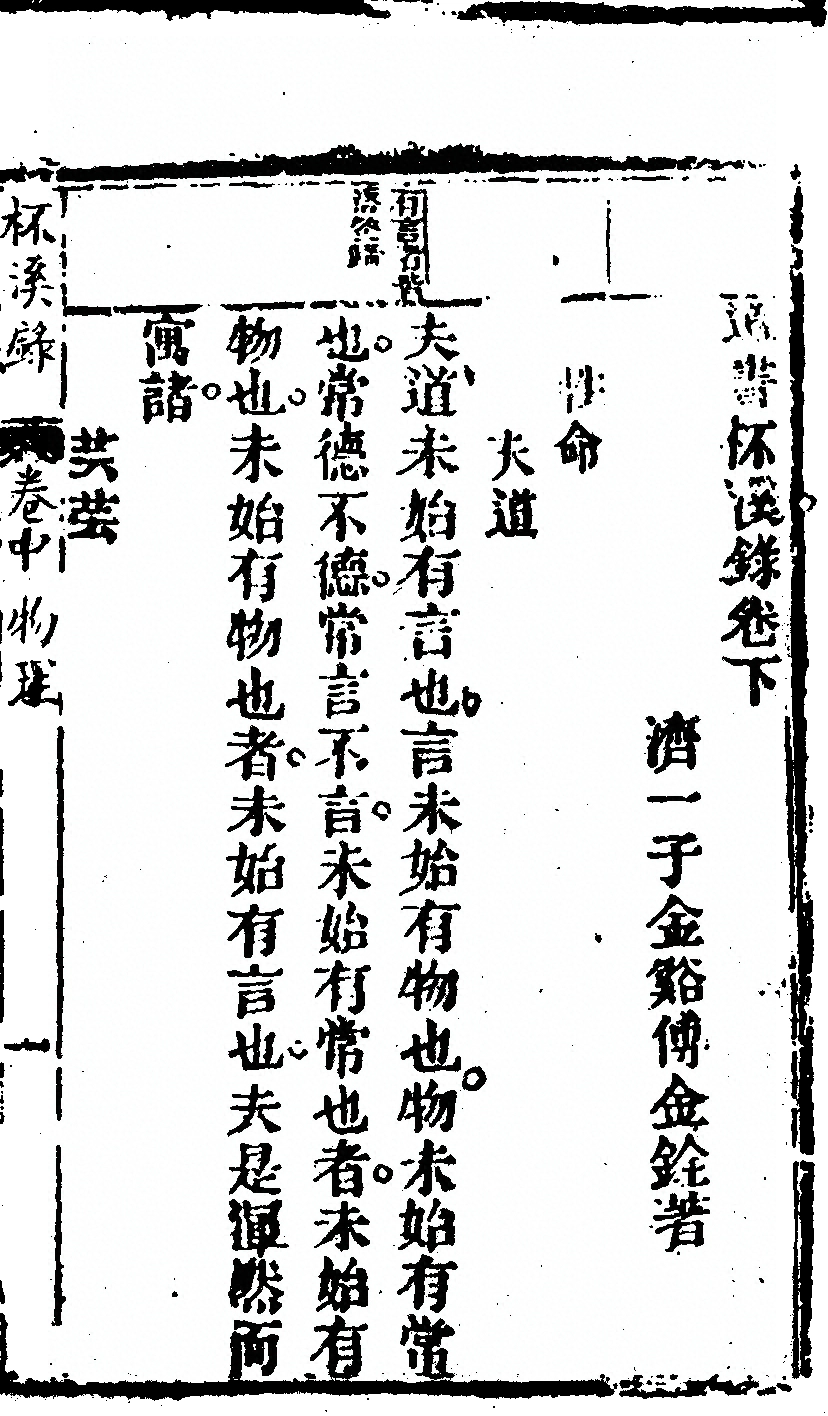 道書杯溪錄卷下
濟一子金谿傅金銓著
性命
大道
夫道未始有言也言未始有物也物未始有常
也常德不德常言不言未始有常也者未始有
物也未始有物也者未始有言也夫是渾然而
寓諸
芸芸
有言有皆
杯溪錄
卷中
物理
一